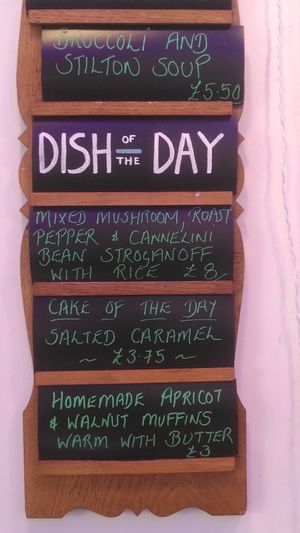 BROCCOLI AND
STILTON SOUP
£5.50
DISH OF THE DAY
MIXED MUSHROOM, ROAST
PEPPER & CANNELINI
BEAN STROGANOFF
WITH RICE £8
CAKE OF THE DAY
SALTED CARAMEL
~ £3.75 ~
HOMEMADE APRICOT
& WALNUT MUFFINS
WARM WITH BUTTER
£3